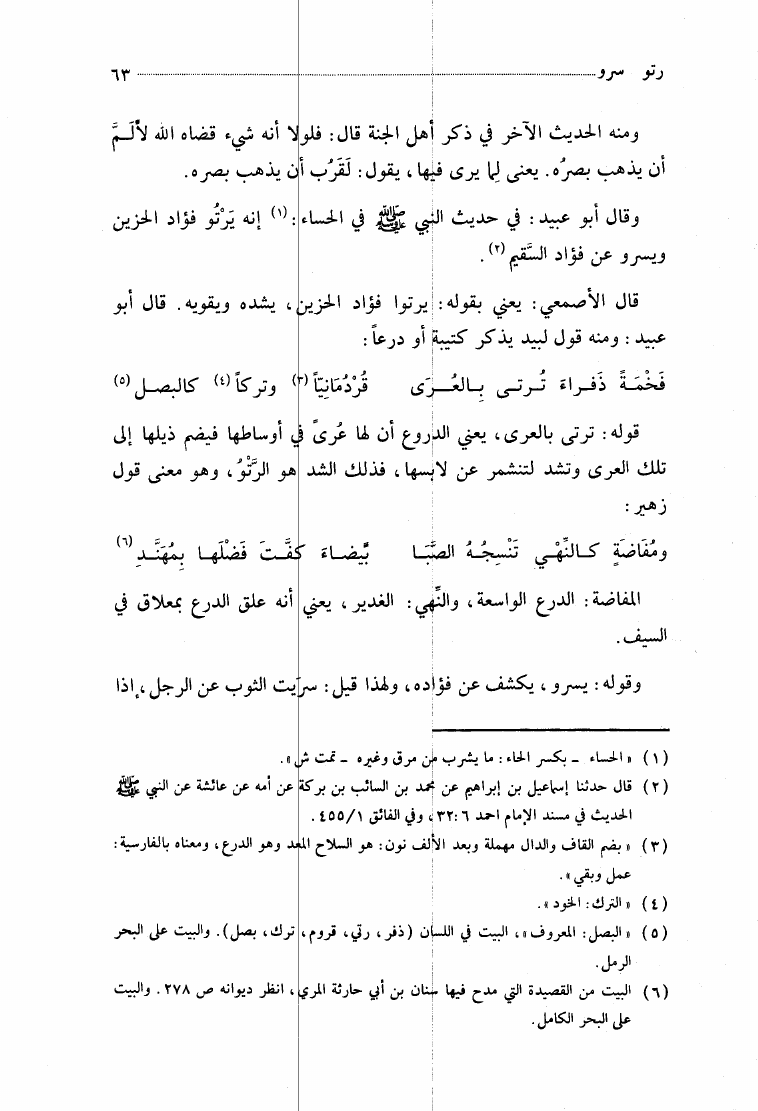 رتو سرو ........ ٦٣
ومنه الحديث الآخر في ذكر أهل الجنة قال: فلولا أنه شيء قضاه الله لأَلَـمَّ
أن يذهب بصرُه. يعني لِما يرى فيها، يقول: لَقَرُب أن يذهب بصره.
وقال أبو عبيد: في حديث النبي ﷺ في الحساء:(١) إنه يَرْتُو فؤاد الحزين
ويسرو عن فؤاد السَّقيم(٢).
قال الأصمعي: يعني بقوله: يرتوا فؤاد الحزين، يشده ويقويه. قال أبو
عبيد: ومنه قول لبيد يذكر كتيبة أو درعاً:
فَخْمَـةً ذَفـراءَ تُـرتـى بـالعُـــرَى قُرْدُمَانِيّاً(٣) وتركاً(٤) كالبصـل(٥)
قوله: ترتى بالعرى، يعني الدروع أن لها عُرىً في أوساطها فيضم ذيلها إلى
تلك العرى وتشد لتنشمر عن لابسها، فذلك الشد هو الرَّتْوُ، وهو معنى قول
زهير:
ومُفَاضَةٍ كـالنِّهْـي تَنْسِجُـهُ الصَّبَـا بَيضـاءَ كفَّـتَ فَضْلَهـا بِمُهَنَّـدِ(٦)
المفاضة: الدرع الواسعة، والنِّهي: الغدير، يعني أنه علق الدرع بمعلاق في
السيف.
وقوله: يسرو، يكشف عن فؤاده، ولهذا قيل: سرَيت الثوب عن الرجل، إذا
(١) «الحساء - بكسر الحاء: ما يشرب من مرق وغيره - تمت ش».
(٢) قال حدثنا إسماعيل بن إبراهيم عن محمد بن السائب بن بركة عن أمه عن عائشة عن النبي ﷺ
الحديث في مسند الإمام احمد ٣٢:٦، وفي الفائق ٤٥٥/١.
(٣) «بضم القاف والدال مهملة وبعد الألف نون: هو السلاح المعد وهو الدرع، ومعناه بالفارسية:
عمل وبقي».
(٤) «الترك: الخود».
(٥) «البصل: المعروف»، البيت في اللسان (ذفر، رتي، قروم، ترك، بصل). والبيت على البحر
الرمل.
(٦) البيت من القصيدة التي مدح فيها سنان بن أبي حارثة المري، انظر ديوانه ص ٢٧٨. والبيت
على البحر الكامل.